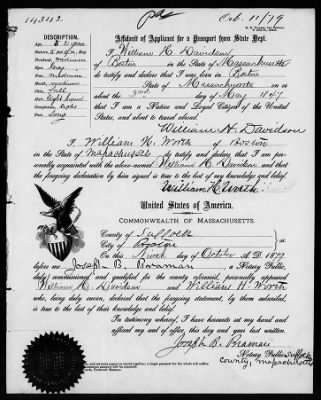 14342
Oct. 10/79
Affidavit of Applicant for a Passport from State Dept.
I William H. Davidson
of Boston in the State of Massachusetts
do testify and declare that I was born in Boston
Massachusetts on the
day of May 1847
that I am a Native and Loyal Citizen of the
United States, and about to travel abroad.
William H. Davidson
I, William H. Worth of Boston
in the State of Massachusetts do testify and declare that I am per-
sonally acquainted with the above-named William H. Davidson and that
the foregoing declaration by him signed is true to the best of my knowledge and belief.
William H. Worth
United States of America.
COMMONWEALTH OF MASSACHUSETTS.
County of Suffolk
City of Boston ss.
On this Ninth day of October A. D. 1879
before me Joseph B. Braman, a Notary Public,
duly commissioned and qualified for the county aforesaid, personally appeared
William H. Davidson and William H. Worth
who, being duly sworn, declared that the foregoing statement, by them subscribed,
is true to the best of their knowledge and belief.
In testimony whereof, I have hereunto set my hand and
affixed my seal of office, this day and year last written.
Joseph B. Braman
Notary Public Suffolk
County, Massachusetts